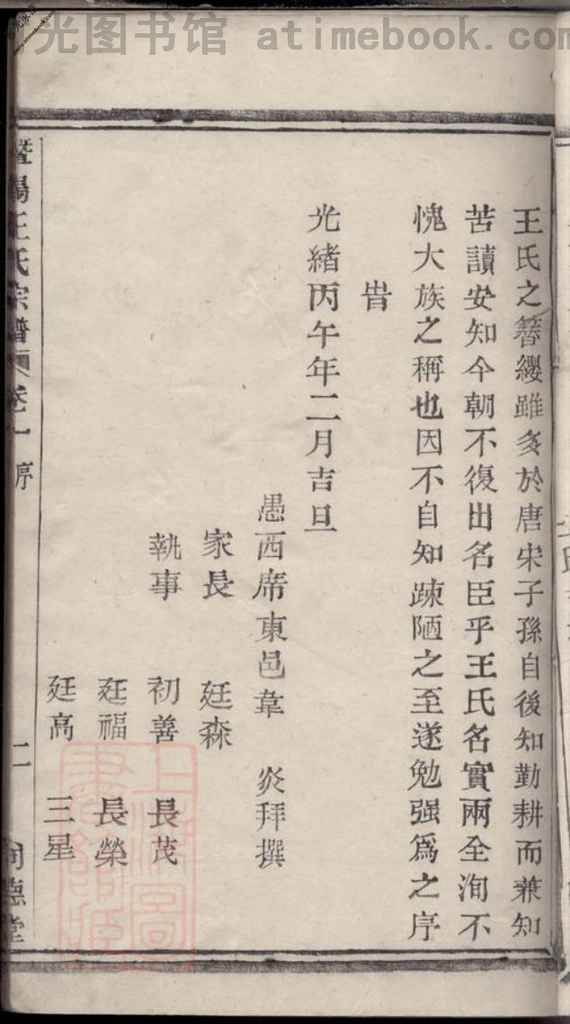 光图书馆 atimebook.com
王氏之簪纓雖多於唐宋子孫自後知勤耕而兼知
苦讀安知今朝不復出名臣乎王氏名實兩全洵不
愧大族之稱也因不自知疎陋之至遂勉强爲之序
旹
光緒丙午年二月吉旦
愚西席東邑韋 炎拜撰
家長 廷森
執事 初善 長茂
廷福 長榮
廷高 三星
暨陽王氏宗譜 卷一 序 二